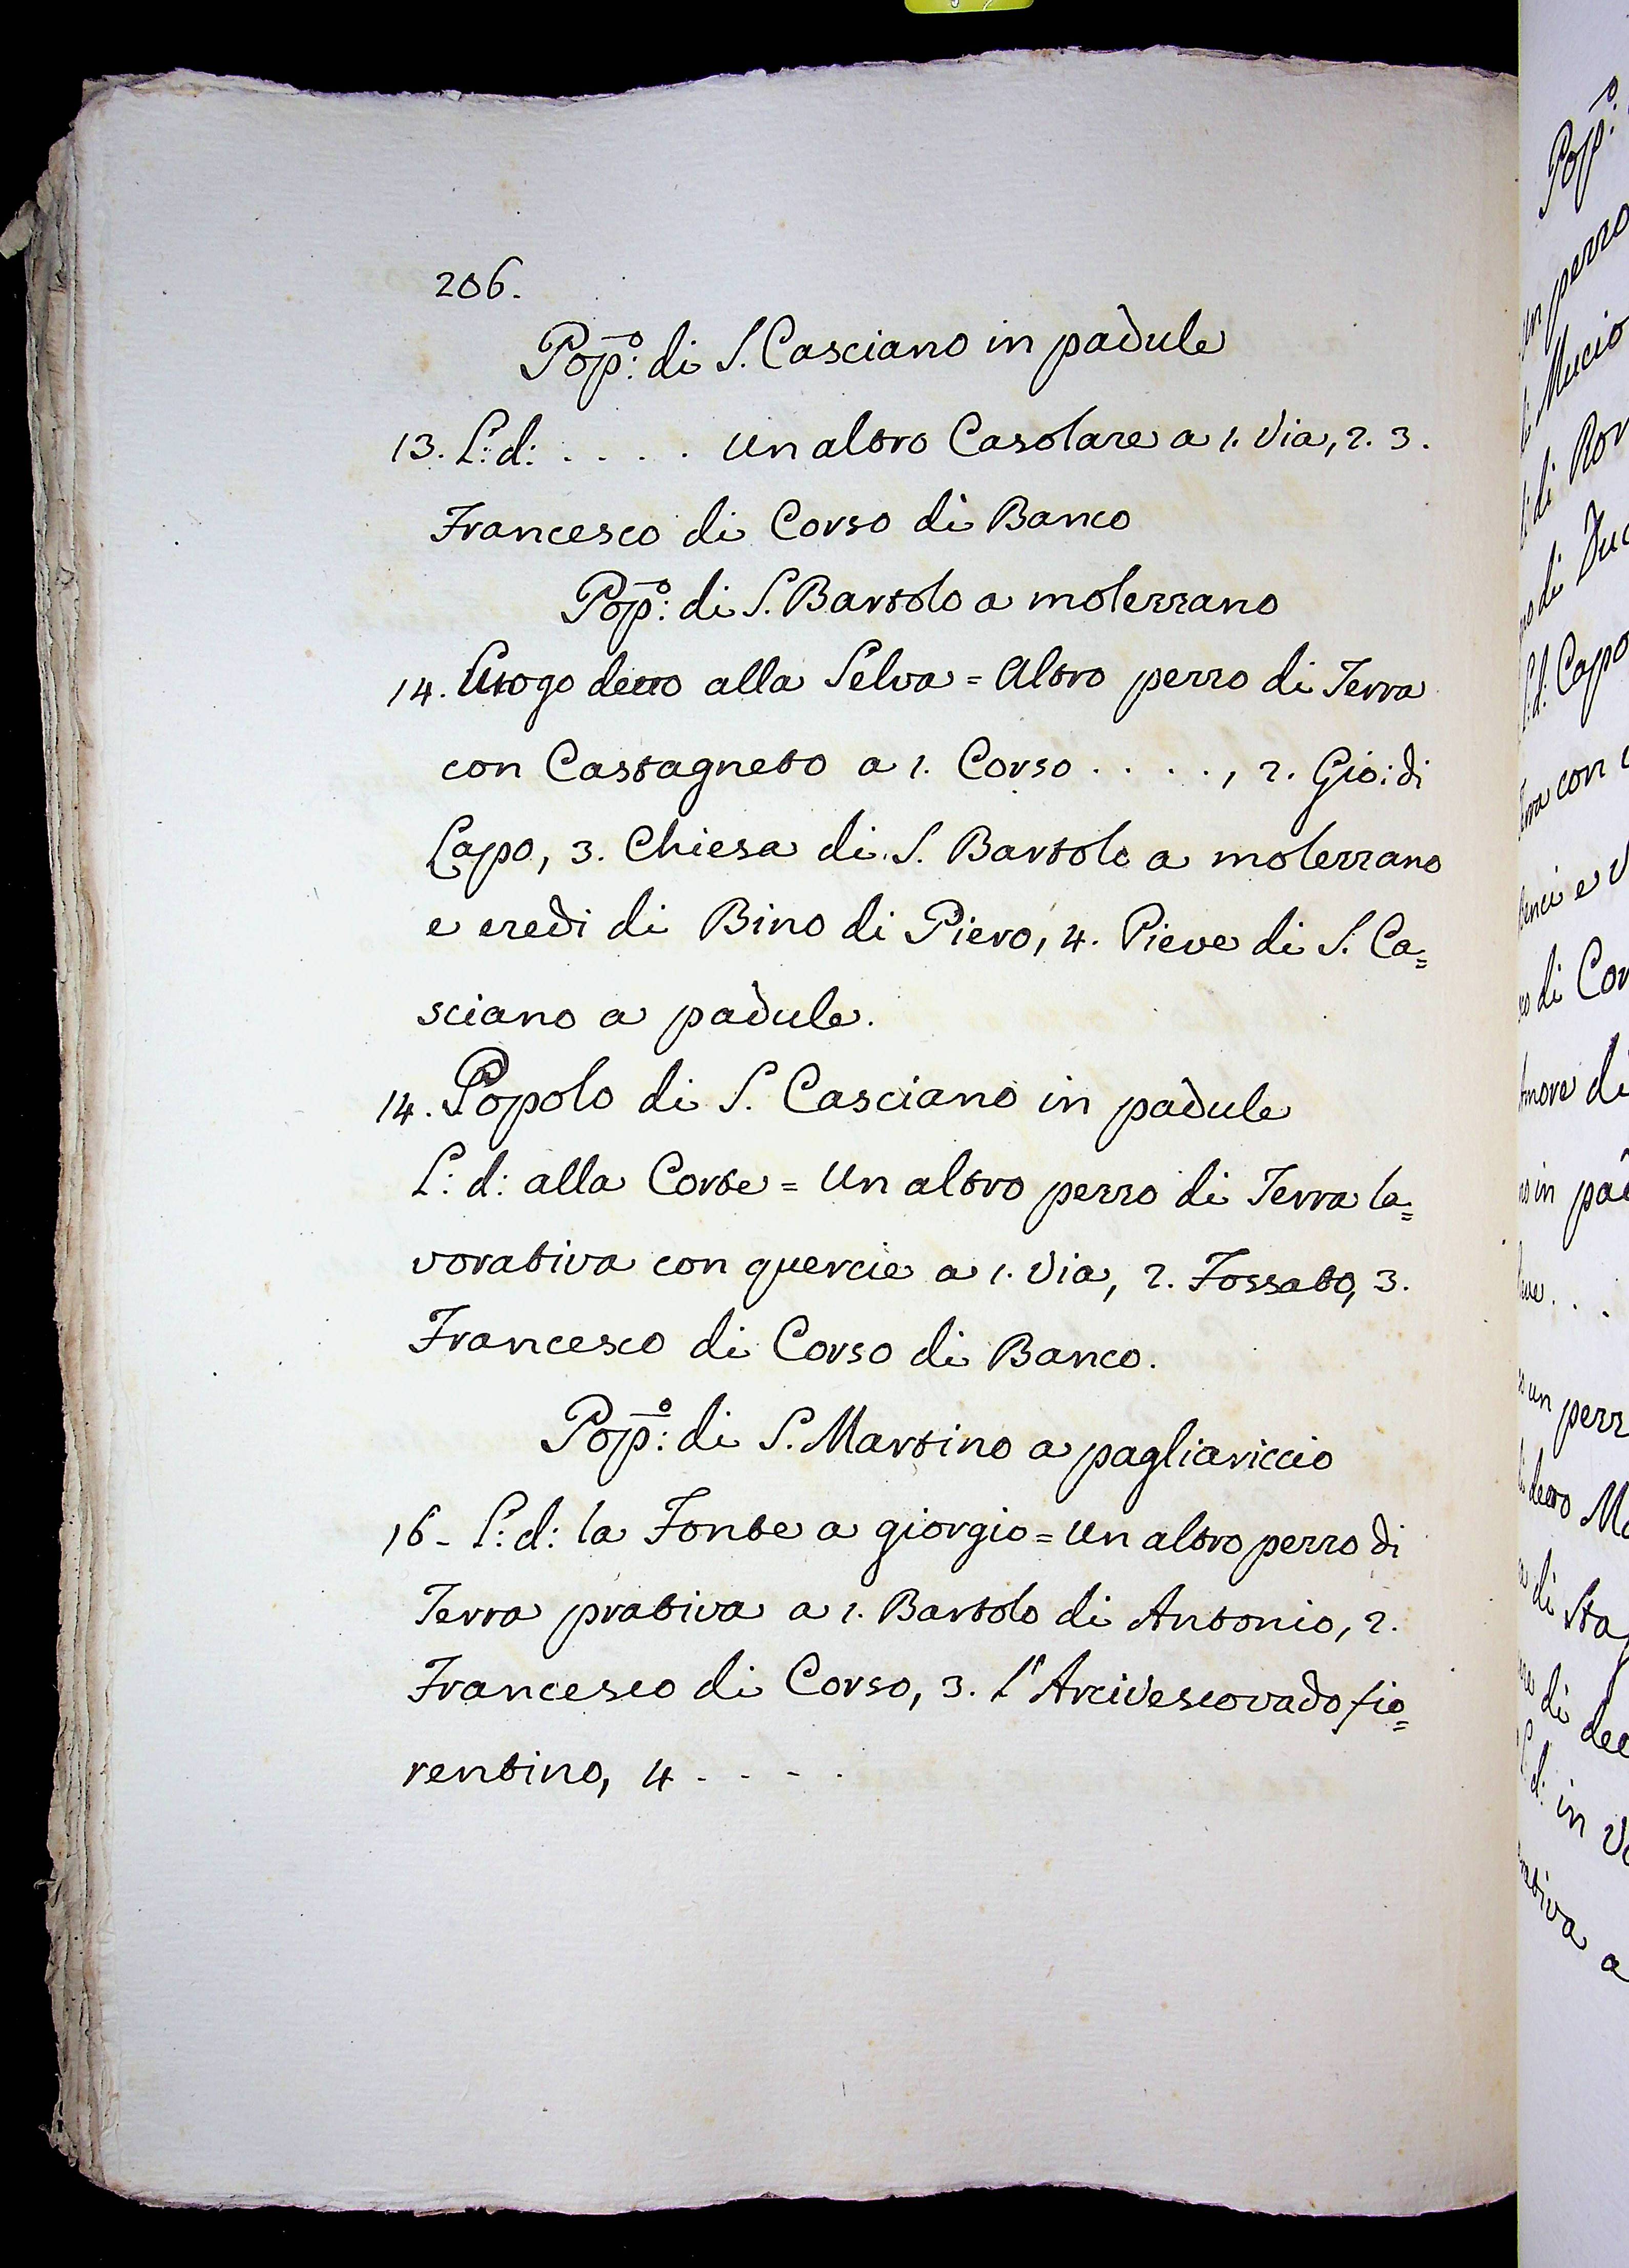 206.
Pop:º di S. Casciano in padule
13. L: d: . . . . un altro Casolare a 1. Via, 2. 3.
Francesco di Corso di Banco
Pop:º di S. Bartolo a molezzano
14. Luogo detto alla Selva = Altro pezzo di Terra
con Castagneto a 1. Corso . . . . , 2. Gio: di
Lapo, 3. Chiesa di S. Bartolo a molezzano
e eredi di Bino di Piero, 4. Pieve di S. Ca=
sciano a padule.
14. Popolo di S. Casciano in padule
L: d: alla Corte = Un altro pezzo di Terra la=
vorativa con quercie a 1. Via, 2. Fossato, 3.
Francesco di Corso di Banco.
Pop:º di S. Martino a pagliariccio
16 - L: d: la Fonte a giorgio = Un altro pezzo di
Terra prativa a 1. Bartolo di Antonio, 2.
Francesco di Corso, 3. l'Arcivescovado fio=
rentino, 4 . - - .
Pop:º
un pezzo
Mucio
di Ror
di Duc
L: d: Capo
con
e V
di Cor
di
in pad
. . .
un pezz
detto Ma
di Sta
di dec
d: in Va
a